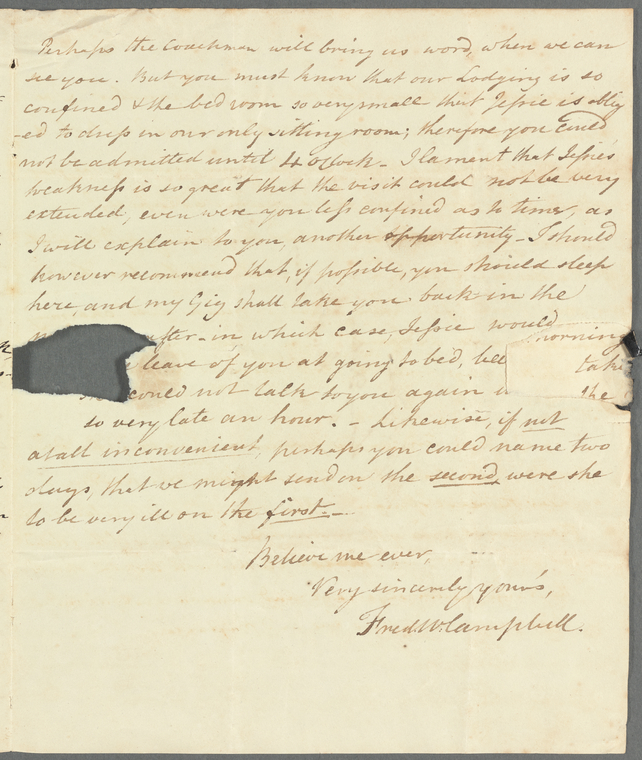 Perhaps the Coachman will bring us word, where we can
see you. But you must know that our Lodging is so
confined & the bed room so very small that Jessie is oblig
-ed to dress in our only sitting room; therefore you could
not be admitted until 4 o'Clock - I lament that Jessie's
weakness is so great that the visit could not be very
extended, even were you less confined as to time, as
I will explain to you, another opportunity - I should
however recommend that, if possible, you should sleep
here, and my Gig shall take you back in the
after - in which case, Jessie would morning
leave of you at going to bed, take
could not talk to you again the
so very late an hour. - Likewise, if not
at all inconvenient, perhaps you could name two
days, that we might send on the second, were she
to be very ill on the first. -
Believe me ever,
Very sincerely your's,
Fred. W. Campbell.